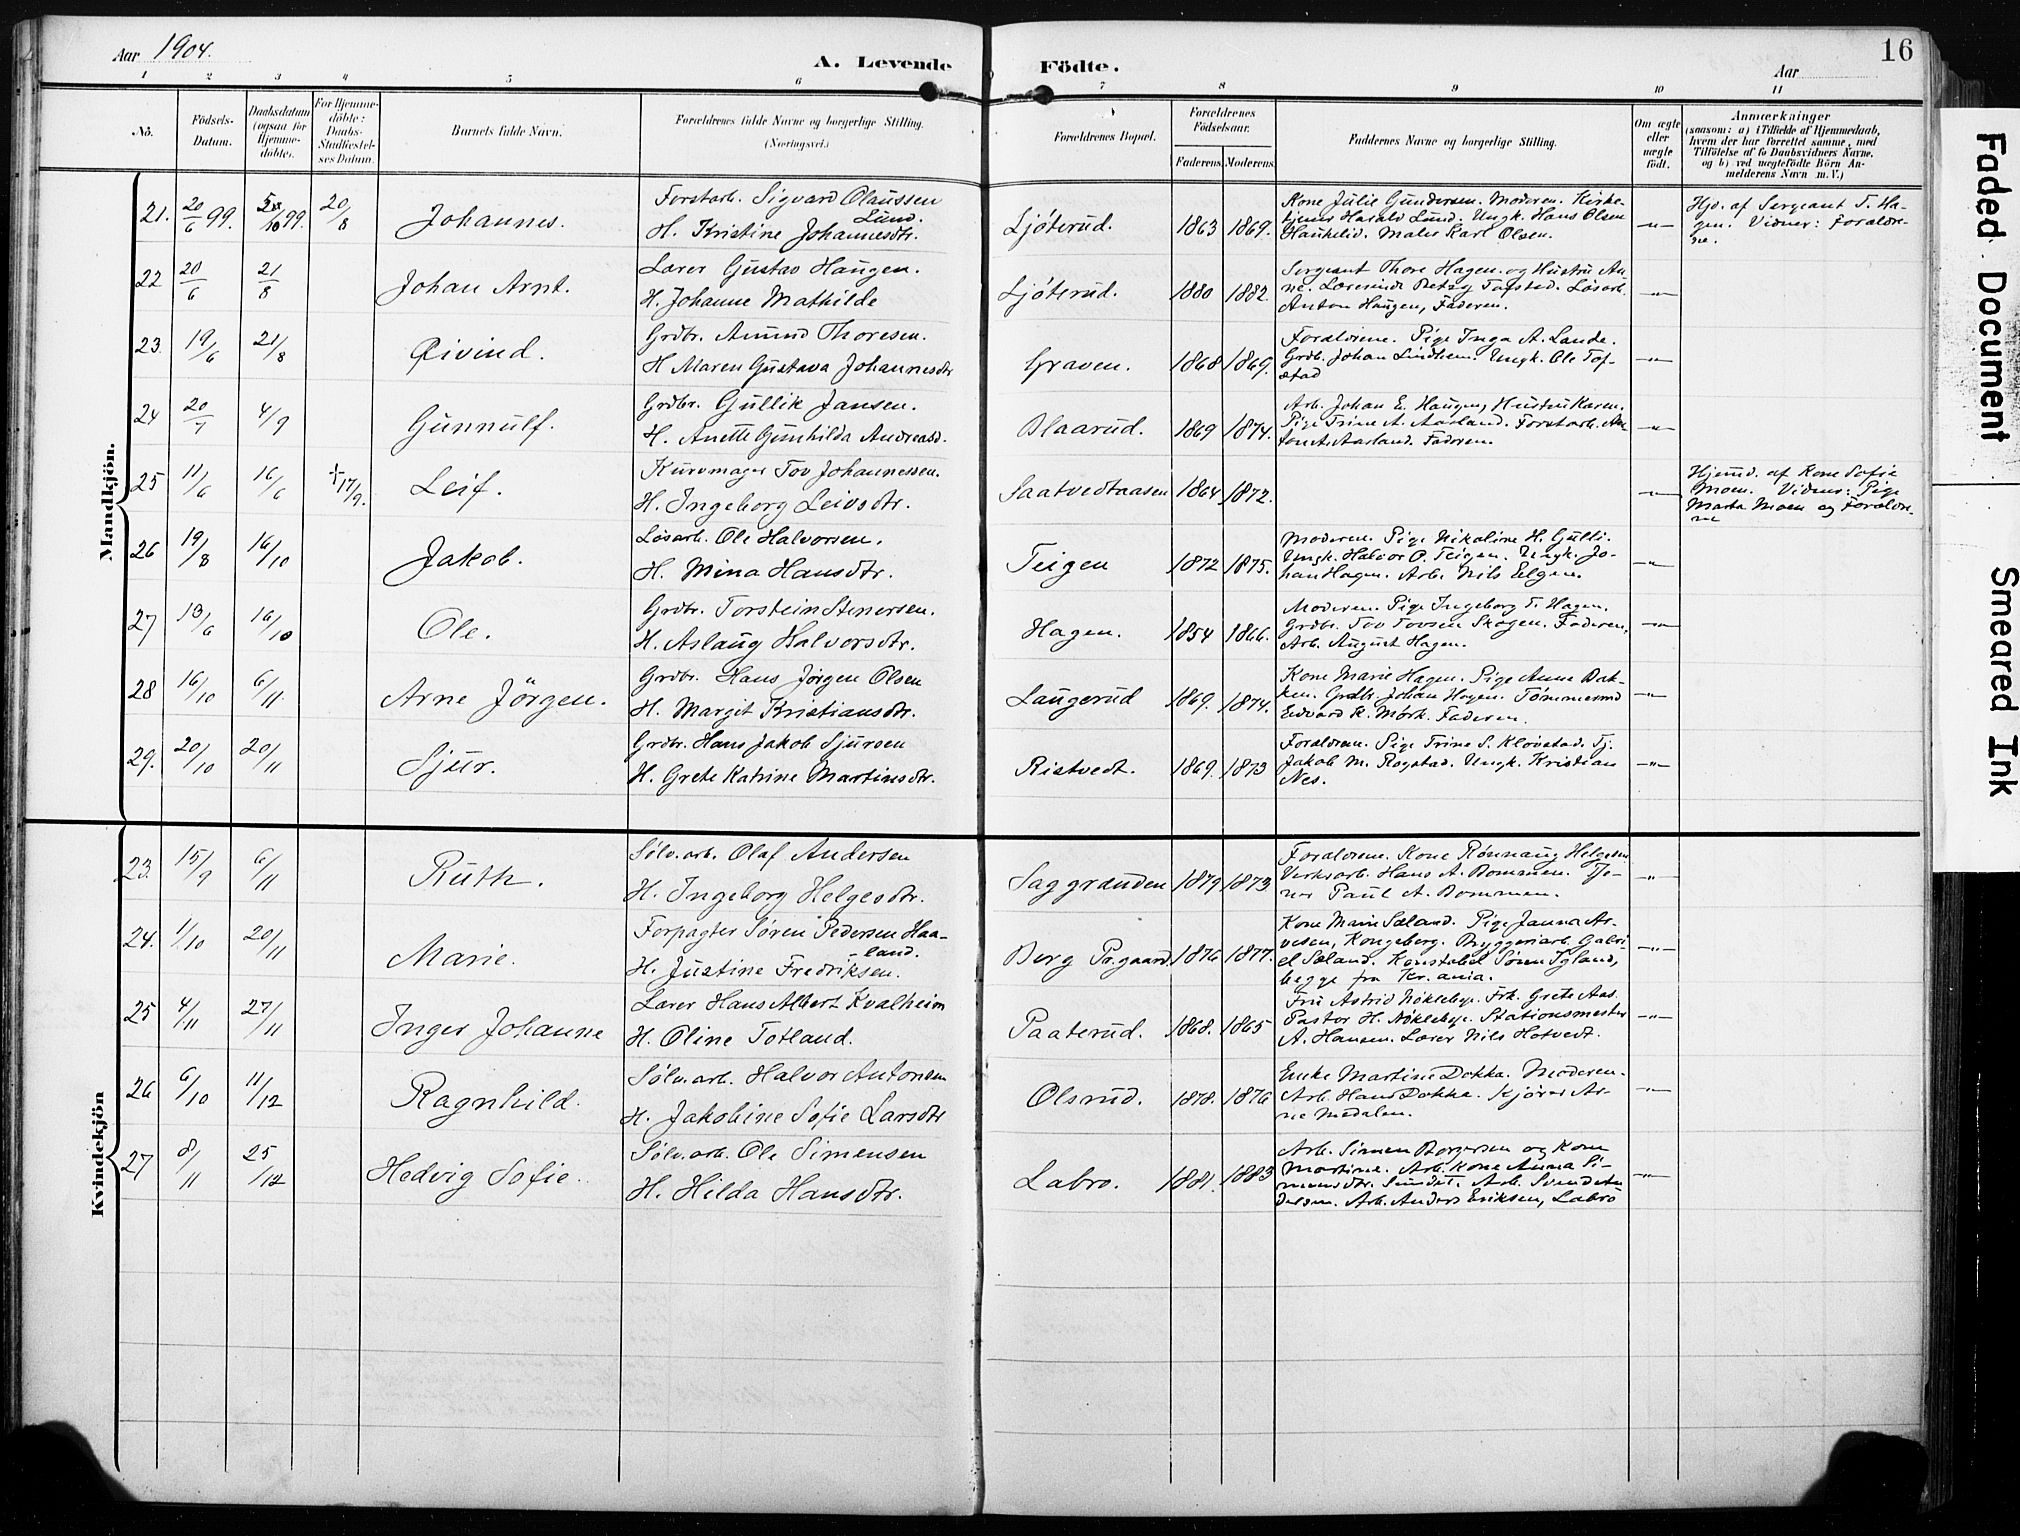 Aar 1904.
A. Levende Födte.
Aar
16
1 2 3 4 5 6 7 8 9 10 11
No.
Födsels-Datum.
Daabsdatum (ogsaa for Hjemme-döbte).
For Hjemme-döbte: Daabs-Stadfæstel-ses Datum.
Barnets fulde Navn.
Forældrenes fulde Navne og borgerlige Stilling.
(Næringsvei.)
Forældrenes Bopæl.
Forældrenes Födselsaar.
Faderens. Moderens.
Faddernes Navne og borgerlige Stilling.
Om ægte eller uægte födt.
Anmærkninger
(saasom: a) i Tilfælde af Hjemmedaab,
hvem der har forrettet samme, med
Tilföielse af to Daabsvidners Navne,
og b) ved uægtefödte Börn An-
melderens Navn m. V.)
Mandkjön.
21. 20/6 99. /10 99. 20/8 Johannes.
Forstarb. Sigvard Olaussen
Lund.
H. Kristine Johannesdtr.
Ljøterud. 1863 1869.
Kone Julie Gundersen. Moderen. Kirke-
tjener Harald Lund. Ungk. Hans Olsen
Haukelid. Maler Karl Olsen.
—"—
Hjd. af Sergeant T. Ha-
gen. Vidner: Foraldre-
ne.
22 20/6 21/8 Johan Arnt.
Lærer Gustav Haugen.
H. Johanne Mathilde
Ljøterud. 1880 1882.
Sergeant Thore Hagen og Hustru An-
ne. Lærerinde Betzy Tofstad. Løsarb.
Anton Haugen, Faderen.
—"—
23. 19/6 21/8 Øivind.
Grdbr. Amund Thoresen.
H Maren Gustava Johannesdtr
Graven. 1868 1869.
Forældrene. Pige Inga A. Lande.
Grdb. Johan Lindhem. Ungk. Ole Tof-
stad
—"—
24 20/7 4/9 Gunnulf.
Grdbr. Gullik Jansen.
H. Anette Gunhilda Andreasd.
Blaarud. 1869 1874.
Arb. Johan E. Haugen, Hustru Karen.
Pige Trine A. Aarland. Forstarb. An-
ton A. Aarland. Faderen.
—"—
25 11/6 16/6 †17/9. Leif.
Kurvmager Tov Johannessen.
H. Ingeborg Leivsdtr.
Saatvedtaasen 1864 1872.
—"—
Hjemd. af Kone Sofie
Moen. Vidner: Pige
Marta Moen og Foraldre-
ne
26 19/8 16/10 Jakob.
Løsarb. Ole Halvorsen.
H. Mina Hansdtr.
Teigen 1872 1875.
Moderen. Pige Nikoline H. Gulli.
Ungk. Halvor O. Teigen. Ungk. Jo-
han Hagen. Arb. Nils Eelgen.
—"—
27 13/6 16/10 Ole.
Grdbr. Torstein Stenersen.
H. Aslaug Halvorsdtr.
Hagen. 1854 1866.
Moderen. Pige Ingeborg T. Hagen.
Grdbr. Tov Tovsen Skogen. Faderen,
Arb. August Hagen.
—"—
28 16/10 6/11. Arne Jörgen.
Grdbr. Hans Jørgen Olsen
H. Margit Kristiansdtr.
Laugerud 1869. 1874.
Kone Marie Hagen. Pige Anne Bak-
ken. Grdbr. Johan Hagen. Tømmermd
Edvard K. Mørk. Faderen.
—"—
29. 20/10 20/11 Sjur.
Grdbr. Hans Jakob Sjursen
H. Grete Katrine Martinsdtr.
Ristvedt. 1869. 1873
Forældrene. Pige Trine S. Klovstad. Tj.
Jakob M. Rogstad. Ungk. Kristian
Nes.
—"—
Kvindekjön
23. 15/9 6/11 Ruth.
Sølv.arb. Olaf Andersen
H. Ingeborg Helgesdtr.
Saggrænden 1879 1873
Forældrene. Kone Rønnaug Helgesen
Verksarb. Hans A. Bommen. Tje-
ner Paul A. Bommen.
—"—
24. 1/10 20/11 Marie.
Forpagter Søren Pedersen Haa-
land.
H. Justine Fredriksen.
Berg Pr.gaard 1876 1877.
Kone Marie Sæland. Pige Janna Ar-
vesen, Kongsberg. Byggeriarb. Gabri-
el Sæland. Konstabel Søren Tyland,
begge fra Kr.ania.
—"—
25 4/11 27/11 Inger Johanne
Lærer Hans Albert Kvalheim
H. Oline Totland.
Paaterud. 1868. 1865
Fru Astrid Nøkleby. Frk. Grete Aas.
Pastor H. Nøkleby. Stationsmester
A. Hansen. Lærer Nils Hotvedt.
—"—
26 6/10 11/12 Ragnhild.
Sølv.arb. Halvor Antonsen
H. Jakobine Sofie Larsdtr
Olsrud. 1878. 1876
Enke Martine Dokka. Moderen.
Arb. Hans Dokka. Kjører Ar-
ne Medalen.
—"—
27 8/11 25/12 Hedvig Sofie.
Sølv.arb. Ole Simensen
H. Hilda Hansdtr.
Labro. 1881. 1883
Arb. Simen Borgersen og Kone
Martine. Arb. Kone Anna Si-
mensdtr. Sundet. Arb.
Arb. Anders Eriksen, Labro
—"—
Faded Document
Smeared Ink